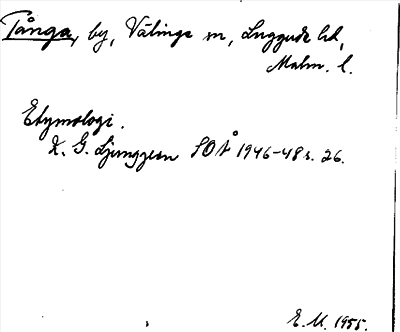 Tånga, by, Välinge sn, Luggude hd,
Malm. l.
Etymologi.
K. G. Ljunggren SOÅ 1946-48 s. 26.
E. M. 1955.